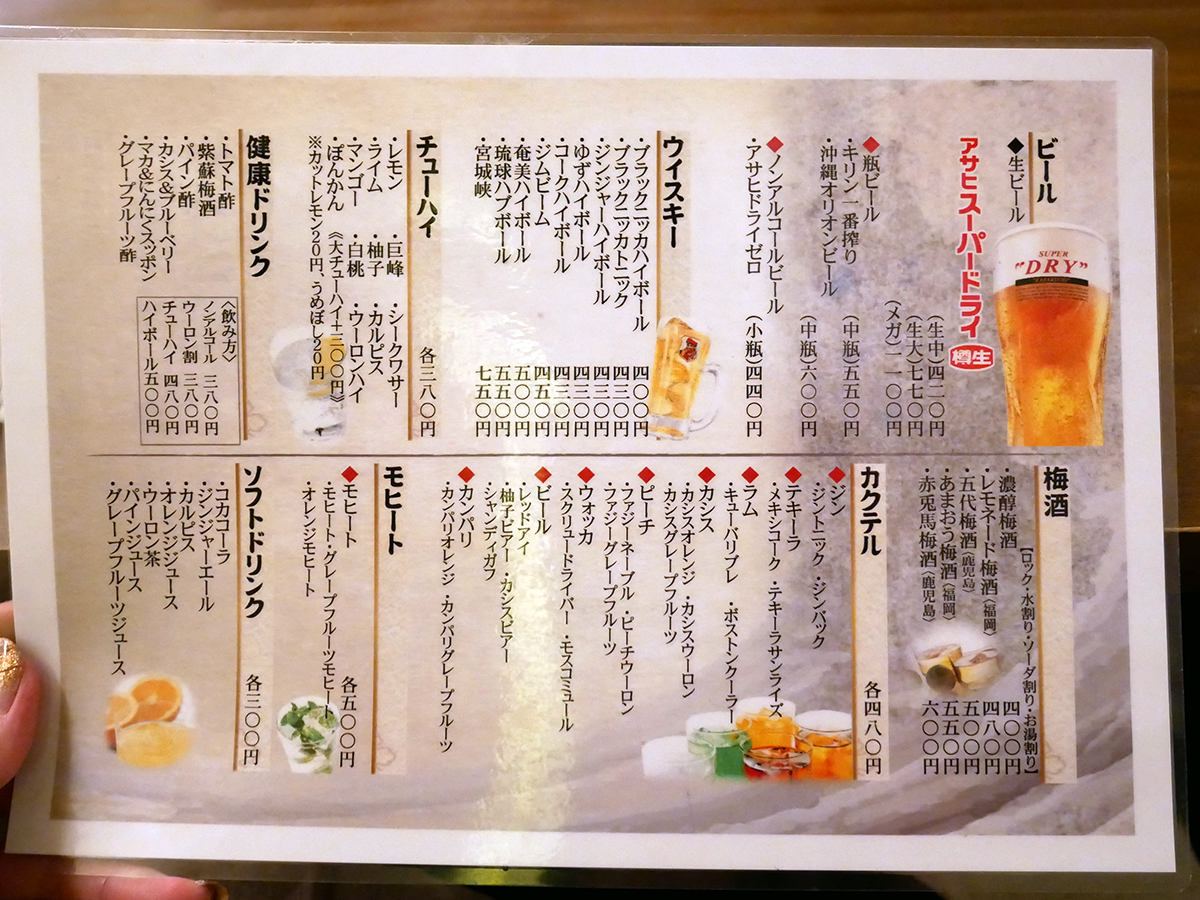 ビール
◆生ビール
アサヒスーパードライ 樽生
SUPER
"DRY"
(生中)四二〇円
(生大)七七〇円
(メガ)一一〇〇円
◆瓶ビール
・キリン一番搾り (中瓶)五五〇円
・沖縄オリオンビール (中瓶)六〇〇円
◆ノンアルコールビール
・アサヒドライゼロ (小瓶)四四〇円
ウイスキー
・ブラックニッカハイボール 四〇〇円
・ブラックニッカトニック 四三〇円
・ジンジャーハイボール 四三〇円
・ゆずハイボール 四三〇円
・コークハイボール 四三〇円
・ジムビーム 四五〇円
・奄美ハイボール 五〇〇円
・琉球ハブボール 五五〇円
・宮城峡 七五〇円
チューハイ 各三八〇円
・レモン ・巨峰 ・シークワサー
・ライム ・柚子 ・カルピス
・マンゴー ・白桃 ・ウーロンハイ
・ぽんかん 《大チューハイ+三〇〇円》
※カットレモン20円、うめぼし20円
健康ドリンク
・トマト酢
・紫蘇梅酒
・パイン酢
・カシス&ブルーベリー
・マカ&にんにくスッポン
・グレープフルーツ酢
〈飲み方〉
ノンアルコール 三八〇円
ウーロン割 三八〇円
チューハイ 四八〇円
ハイボール 五〇〇円
梅酒
【ロック・水割り・ソーダ割り・お湯割り】
・濃醇梅酒 四〇〇円
・レモネード梅酒(福岡) 四八〇円
・五代梅酒(鹿児島) 五〇〇円
・あまおう梅酒(福岡) 五五〇円
・赤兎馬梅酒(鹿児島) 六〇〇円
カクテル 各四八〇円
◆ジン
・ジントニック ・ジンバック
◆テキーラ
・メキシコーク ・テキーラサンライズ
◆ラム
・キューバリブレ ・ボストンクーラー
◆カシス
・カシスオレンジ ・カシスウーロン
・カシスグレープフルーツ
◆ピーチ
・ファジーネーブル ・ピーチウーロン
・ファジーグレープフルーツ
◆ウォッカ
・スクリュードライバー ・モスコミュール
◆ビール
・レッドアイ
・柚子ビアー ・カシスビアー
・シャンディガフ
◆カンパリ
・カンパリオレンジ ・カンパリグレープフルーツ
モヒート
◆モヒート 各五〇〇円
・モヒート・グレープフルーツモヒート
・オレンジモヒート
ソフトドリンク 各三〇〇円
・コカコーラ
・ジンジャーエール
・カルピス
・オレンジジュース
・ウーロン茶
・パインジュース
・グレープフルーツジュース